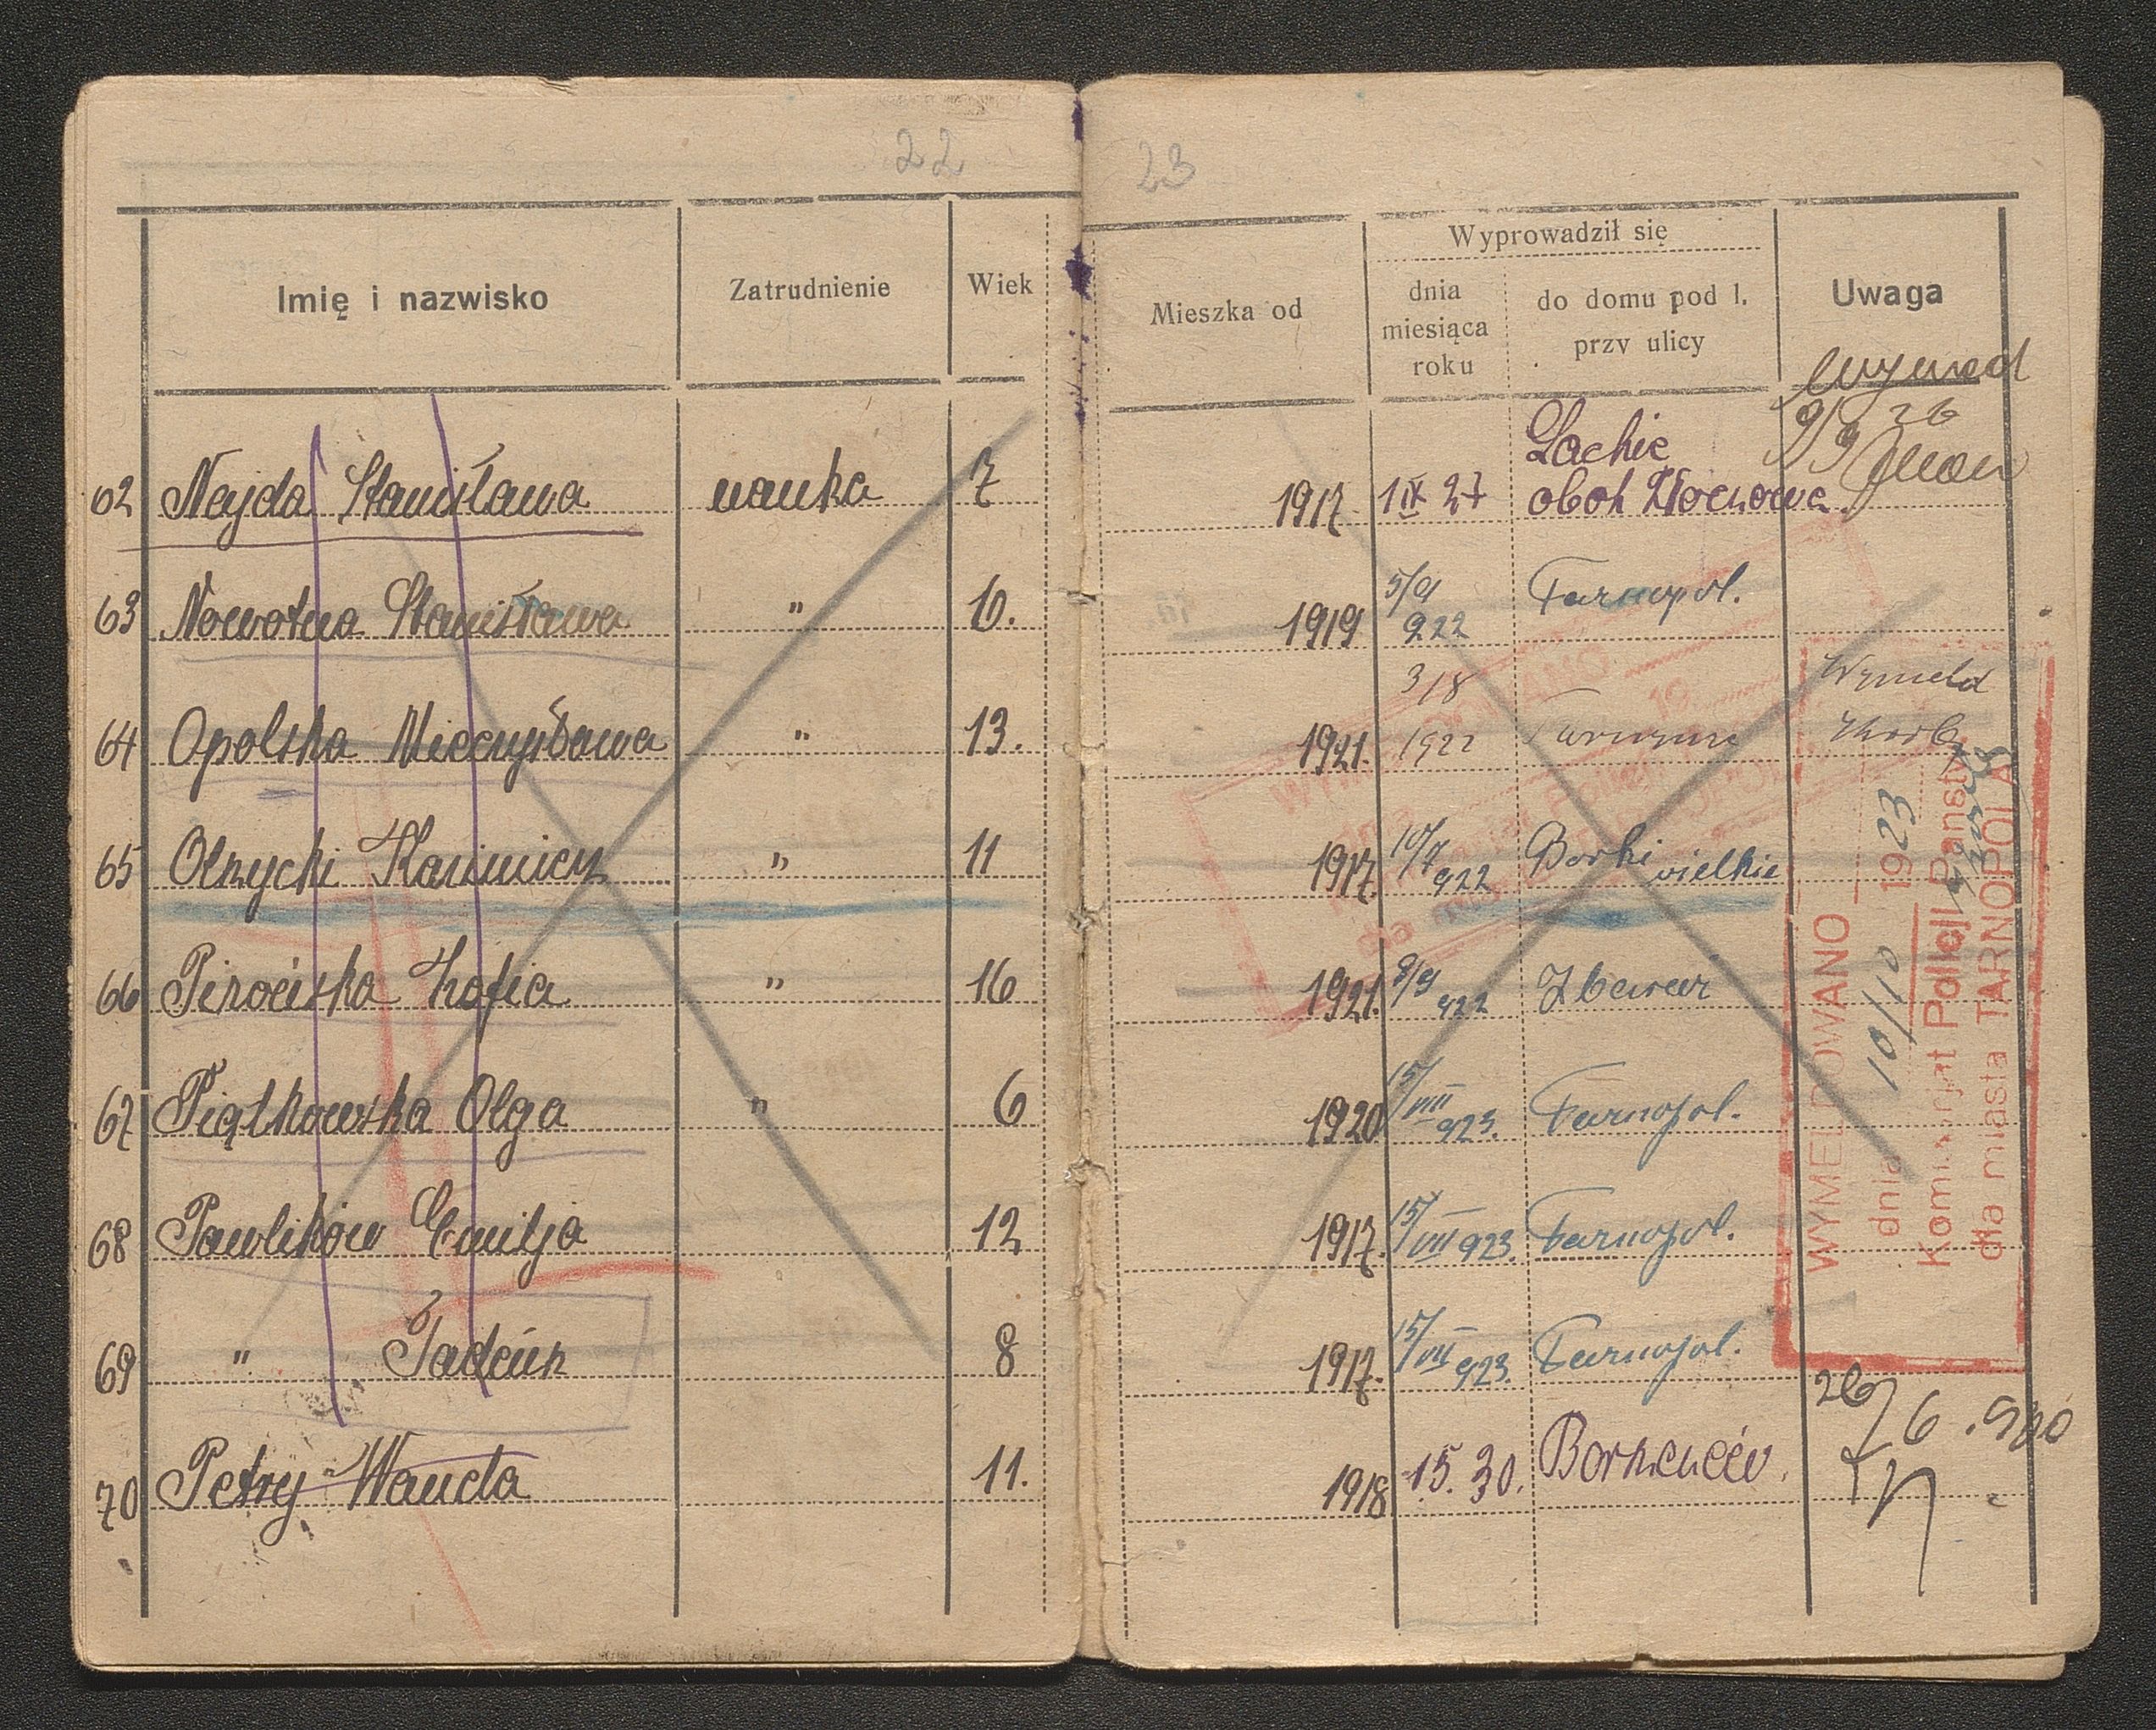 22
23
Imię i nazwisko
Zatrudnienie
Wiek
Mieszka od
Wyprowadził się
dnia
miesiąca
roku
do domu pod l.
przy ulicy
Uwaga
62 Najda Stanisława nauka 7 1917. 1 IX 27 Lackie
obok Złoczowa
9/9 26
63 Nowotna Stanisława " 6. 1919 5/9
922 Tarnopol.
64 Opolska Mieczysława " 13. 1921. 3/8
1922
Wymeld
65 Olszycki Kazimierz " 11 1917. 10/7 922 Borki wielkie
66 Zofia " 16 1921. 8/9 922 Zbaraż
67 Piątkowska Olga " 6 1920 15/VIII 923. Tarnopol.
68 Pawlików Emilja 12 1917. 15/VII 923. Tarnopol.
69 " Tadeusz 8 1917. 15/VII 923. Tarnopol.
70 Petry Wanda 11. 1918 15. 30.
26/6
WYMELDOWANO
dnia 10/10 1923
Komisarjat Policji Państw.
dla miasta TARNOPOLA